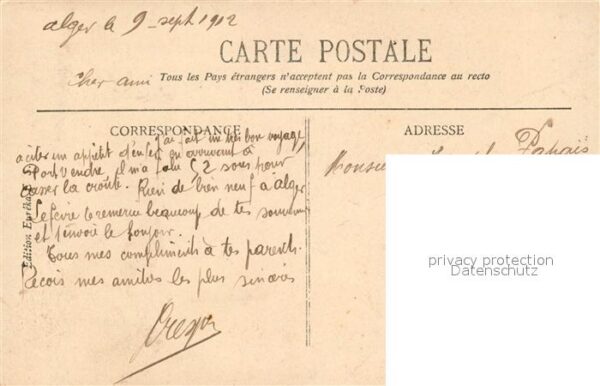 alger le 9 sept 1912
CARTE POSTALE
Cher ami
Tous les Pays étrangers n'acceptent pas la Correspondance au recto
(Se renseigner à la Poste)
CORRESPONDANCE
ADRESSE
J'ai fait un très bon voyage
un appétit en arrivant à
Port Vendre, il m'a fallu 52 sous pour
casser la croûte. Rien de bien neuf à alger
Lefevre te remercie beaucoup de ton souvenir
et t'envoie le bonjour.
Tous mes compliments à tes parents.
Reçois mes amitiés les plus sincères
Monsieur
Edition Eurêka
privacy protection
Datenschutz